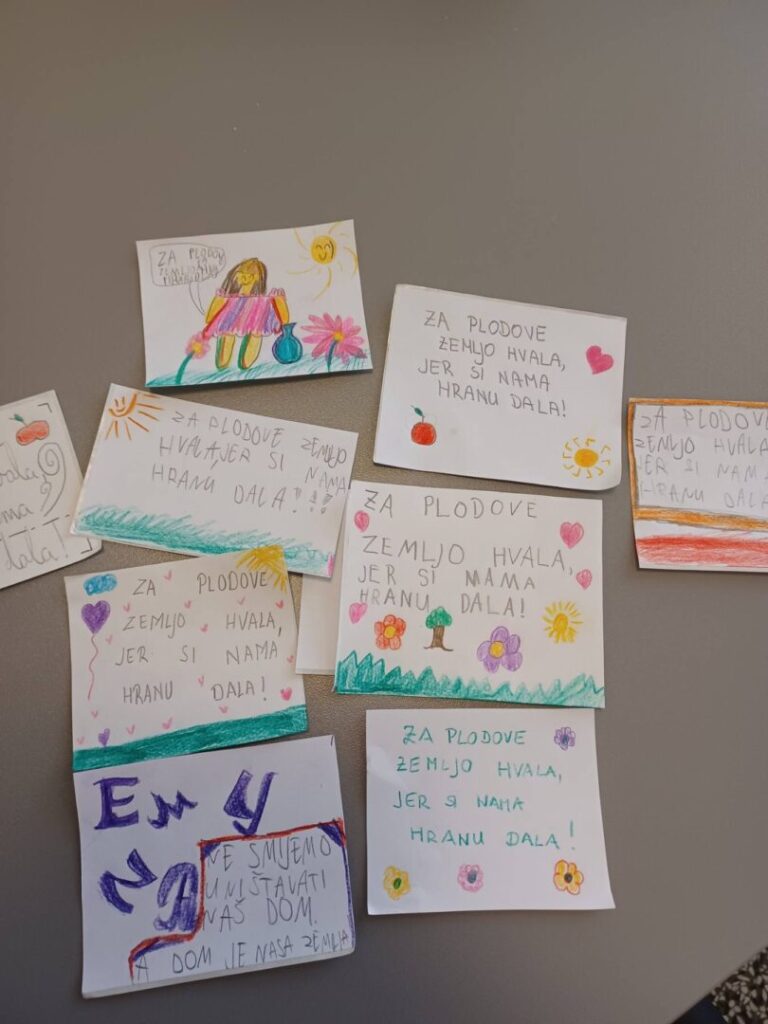 ZA PLODOV
ZA PLODOVE
ZEMLJO HVALA,
JER SI NAMA
HRANU DALA!
ZA PLODOVE ZEMLJO
HVALA, JER SI NAMA
HRANU DALA!!!!
vala,
ma
dala!
ZA PLODOVE
ZEMLJO HVALA
JER SI NAMA
HRANU DALA
ZA PLODOVE
ZEMLJO HVALA,
JER SI MAMA
HRANU DALA!
ZA PLODOVE
ZEMLJO HVALA,
JER SI NAMA
HRANU DALA!
ZA PLODOVE
ZEMLJO HVALA,
JER SI NAMA
HRANU DALA!
EMY
NE SMIJEMO
UNIŠTAVATI
NAŠ DOM.
A DOM JE NASA ZEMLJA